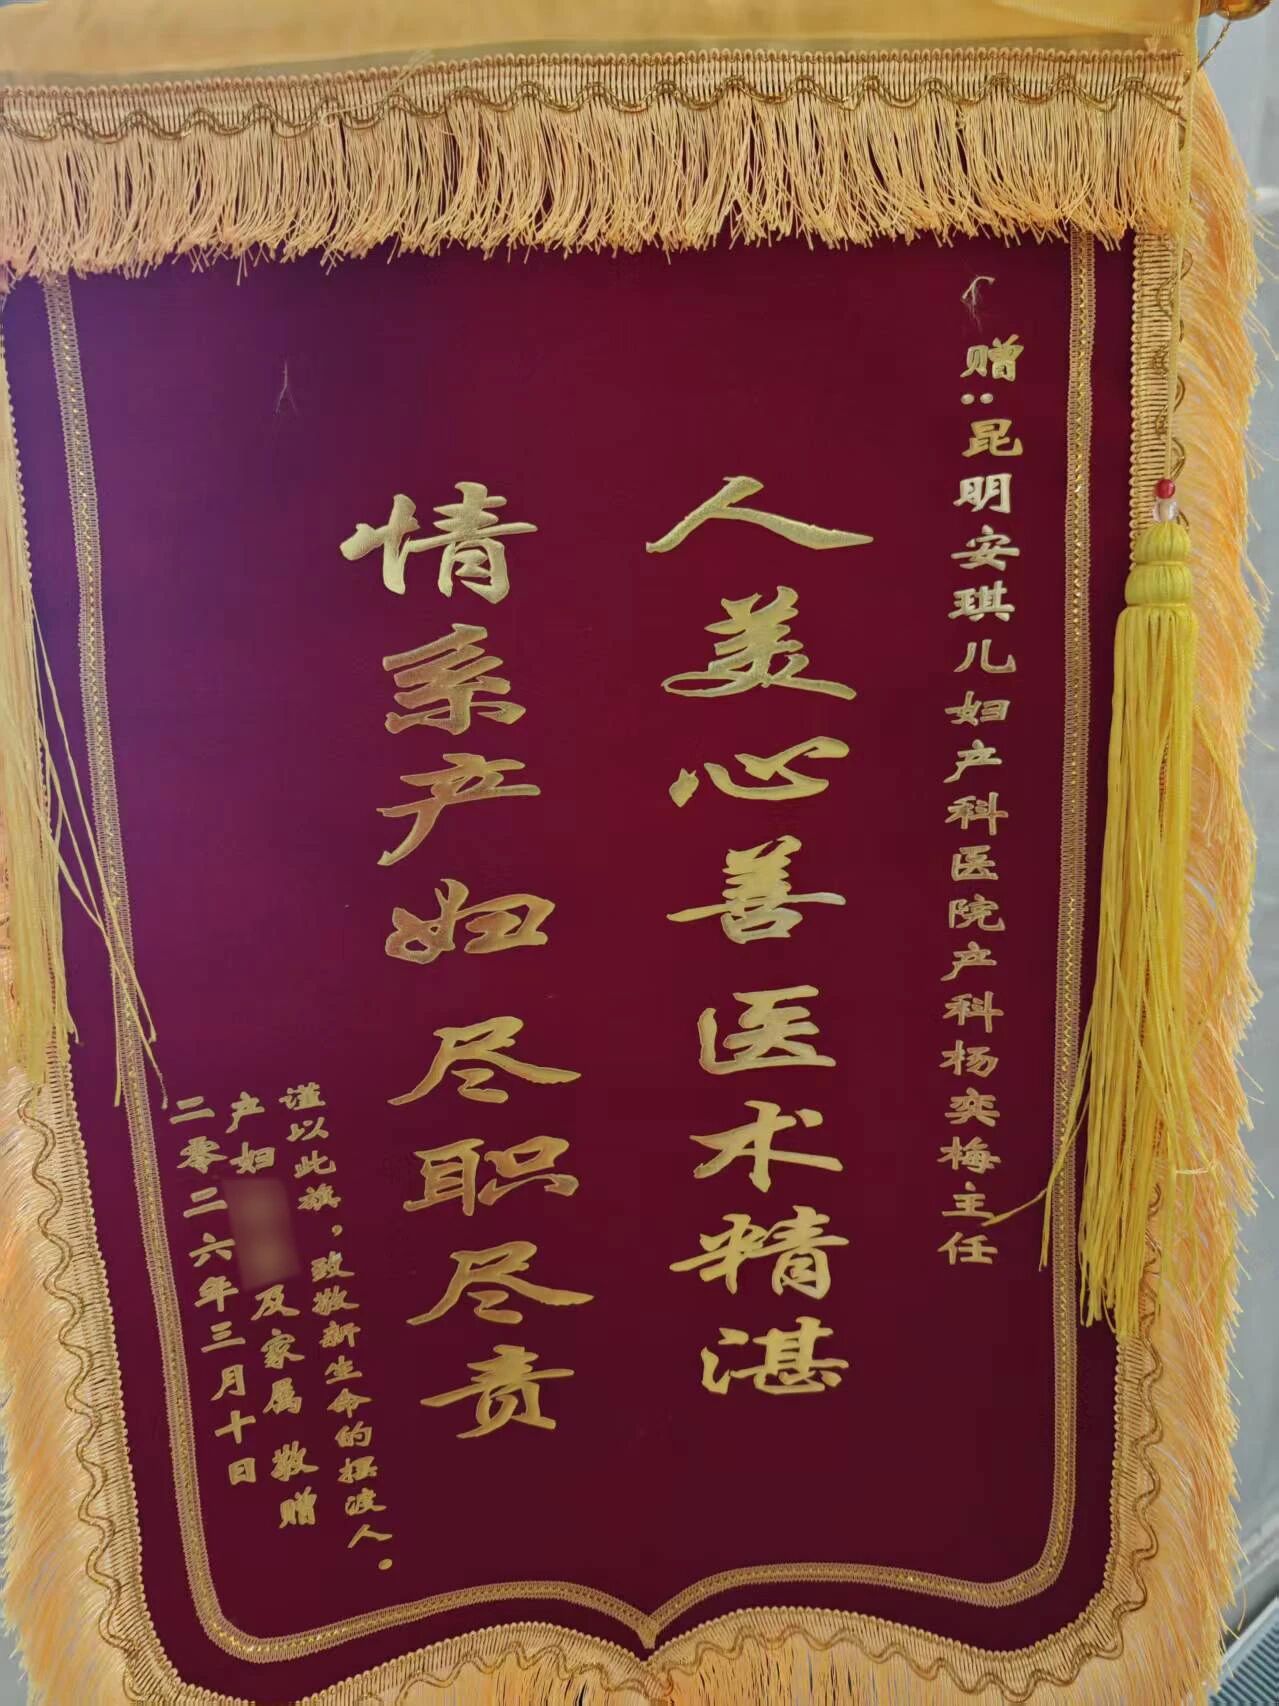 赠:昆明安琪儿妇产科医院产科杨奕梅主任
人美心善医术精湛
情系产妇尽职尽责
谨以此旗,致敬新生命的摆渡人。
产妇 及家属 敬赠
二零二六年三月十日